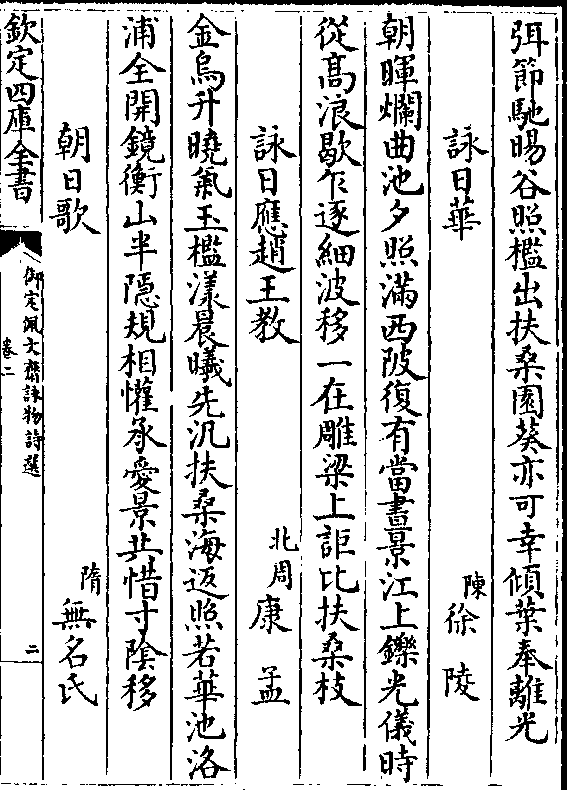 弭節馳暘谷照檻出扶桑園葵亦可幸傾葉奉離光
詠日華 陳徐陵
朝暉爛曲池夕照滿西陂復有當晝景江上鑠光儀時
從高浪歇乍逐細波移一在雕梁上詎比扶桑枝
詠日應趙王教 北周康孟
金烏升曉氣玉檻漾晨曦先汎扶桑海返照若華池洛
浦全開鏡衡山半隱規相懽承愛景共惜寸陰移
朝日歌 隋無名氏
欽定四庫全書
御定佩文齋詠物詩選
卷二
二